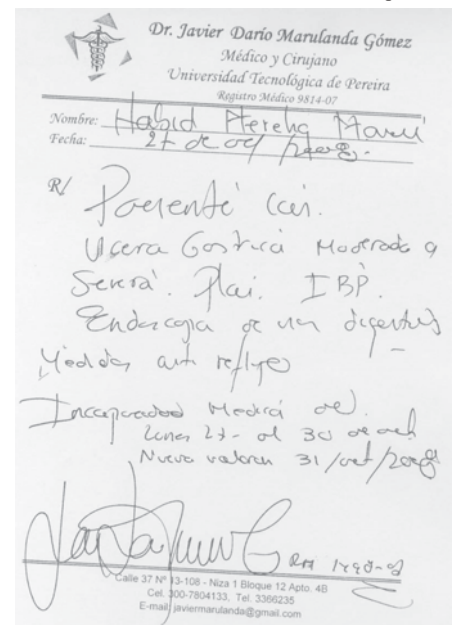 Dr. Javier Darío Marulanda Gómez
Médico y Cirujano
Universidad Tecnológica de Pereira
Registro Médico 9814-07
Nombre: Habid
Fecha: 27 de oct
R/ Paciente con
Ulcera Gastrica Moderada a
Severa. Plan. IBP.
Endoscopia de vias digestivas
Medidas anti reflujo
Incapacidad Medica del
Lunes 27 - al 30 de oct
Nueva valoracion 31/oct/2008
Calle 37 Nº 13-108 - Niza 1 Bloque 12 Apto. 4B
Cel. 300-7804133, Tel. 3366235
E-mail: javiermarulanda@gmail.com